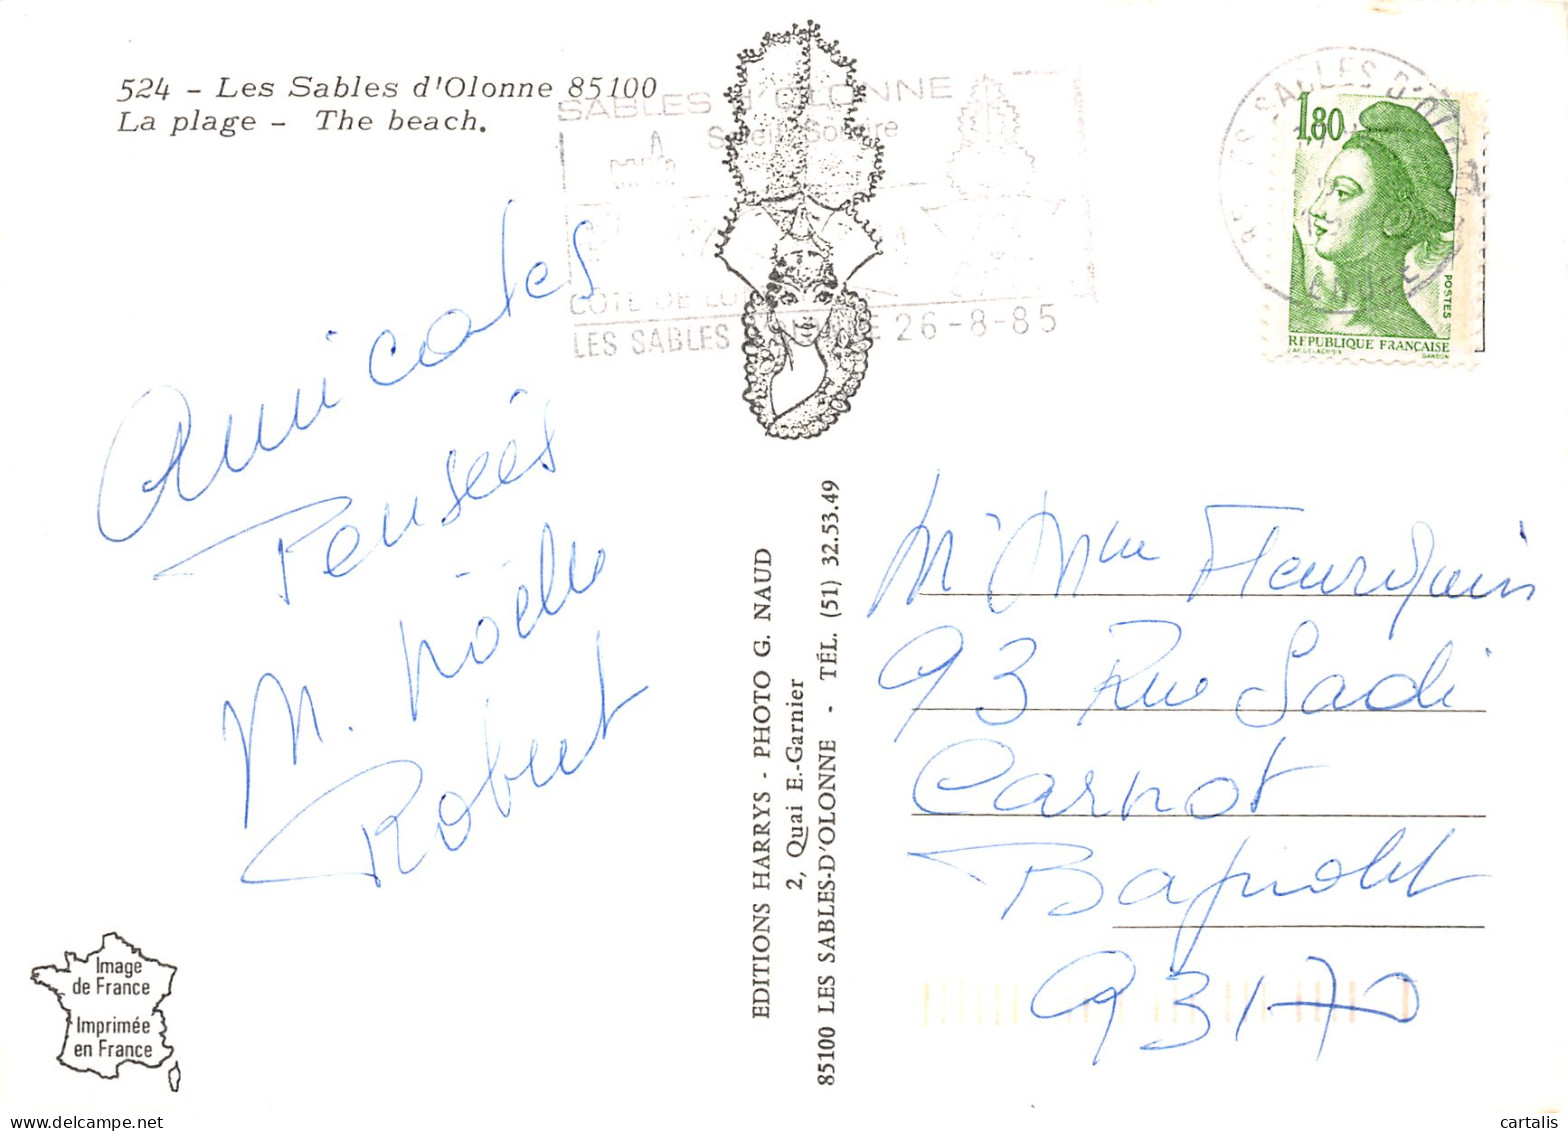 524 - Les Sables d'Olonne 85100
La plage - The beach.
SABLES d'OLONNE
Soleil Sourire
COTE DE LUMIERE
LES SABLES D'OLONNE 26-8-85
LES SABLES D'OLONNE
1,80
POSTES
RÉPUBLIQUE FRANÇAISE
D'AP. DELACROIX GANDON
Amicales
Pensées
M. Noëlle
Robert
EDITIONS HARRYS - PHOTO G. NAUD
2, Quai E.-Garnier
85100 LES SABLES-D'OLONNE - TÉL. (51) 32.53.49
M Mme Fleurquin
93 Rue Sadi
Carnot
Bagnolet
93170
Image
de France
Imprimée
en France
cartalis